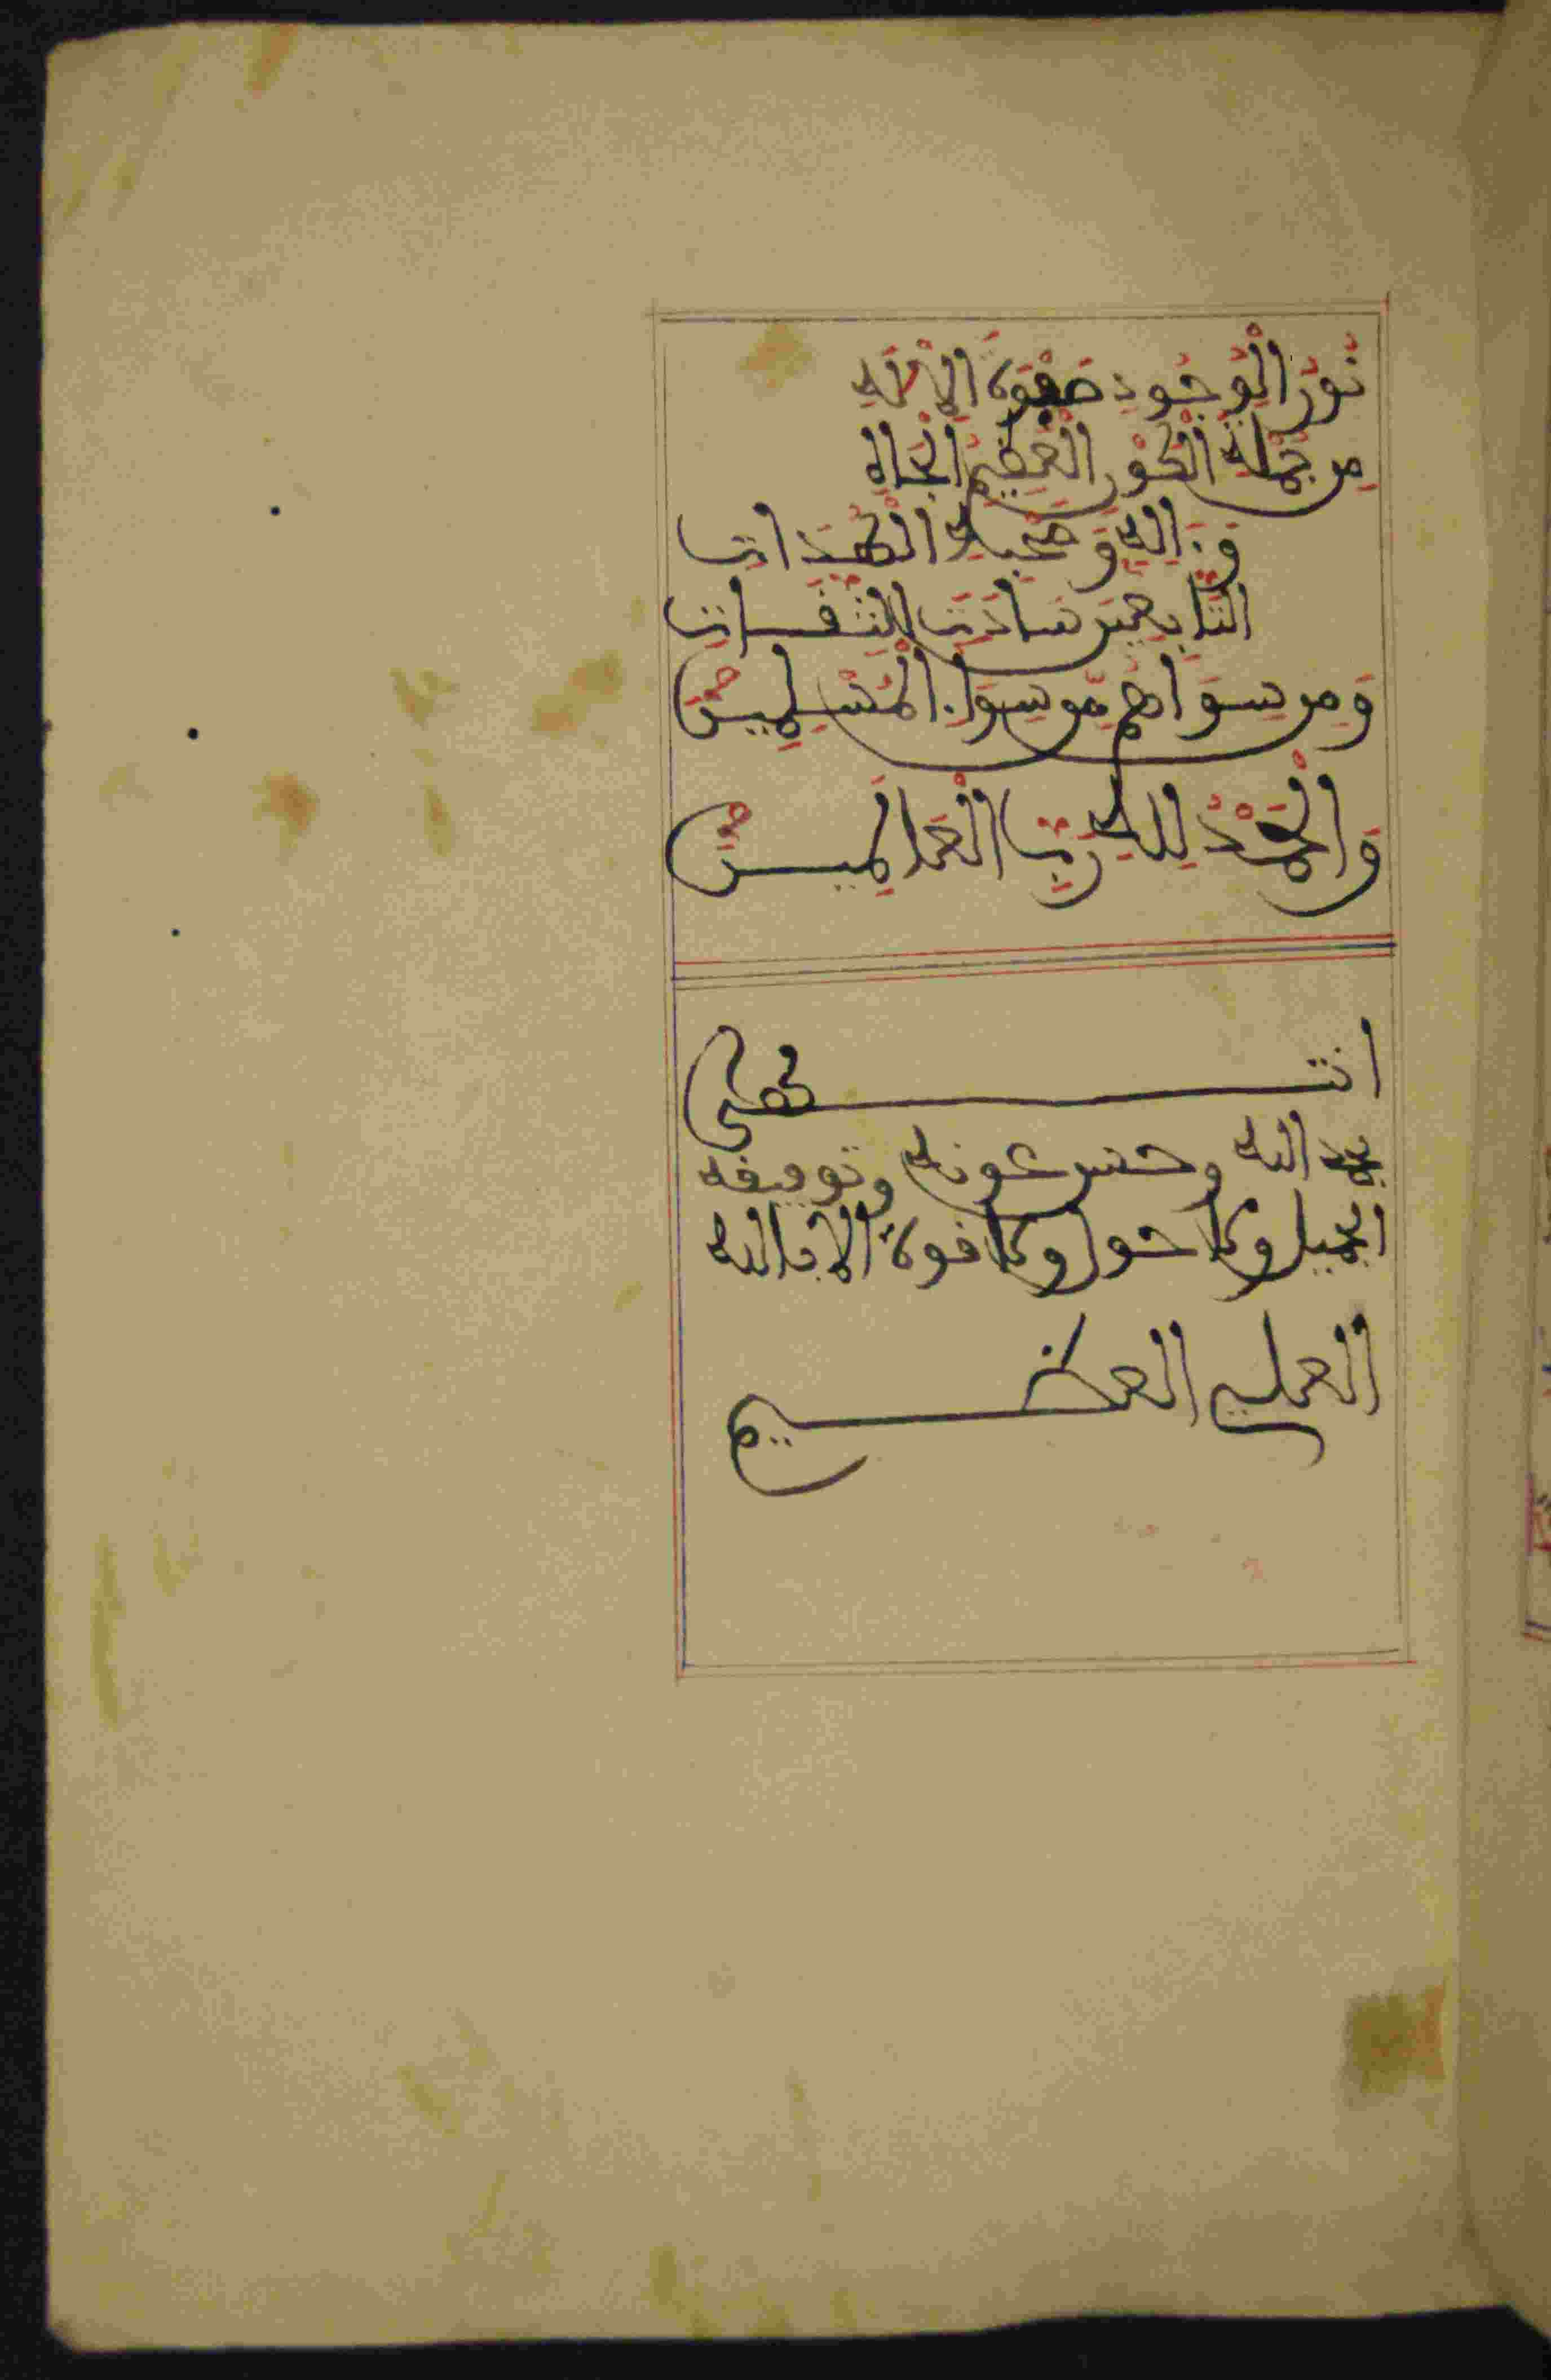 نُورُ الْوُجُودِ صَفْوَةُ الْإِلَهِ
مِن جُمْلَةِ الْكَوْنِ الْعَظِيمُ الْجَاهِ
وَءَالِهِ وَصَحْبِهِ الْهُدَاتِ
التَّابِعِينَ سَادَتِ الثِّقَاتِ
وَمِن سِوَاهُم مِّن سِوَا الْمُسْلِمِينْ
وَالْحَمْدُ لِلهِ رَبِّ الْعَالَمِينْ
انتهى
بحمد الله وحسن عونه وتوفيقه
الجميل ولا حول ولا قوة الا بالله
العلي العظيم